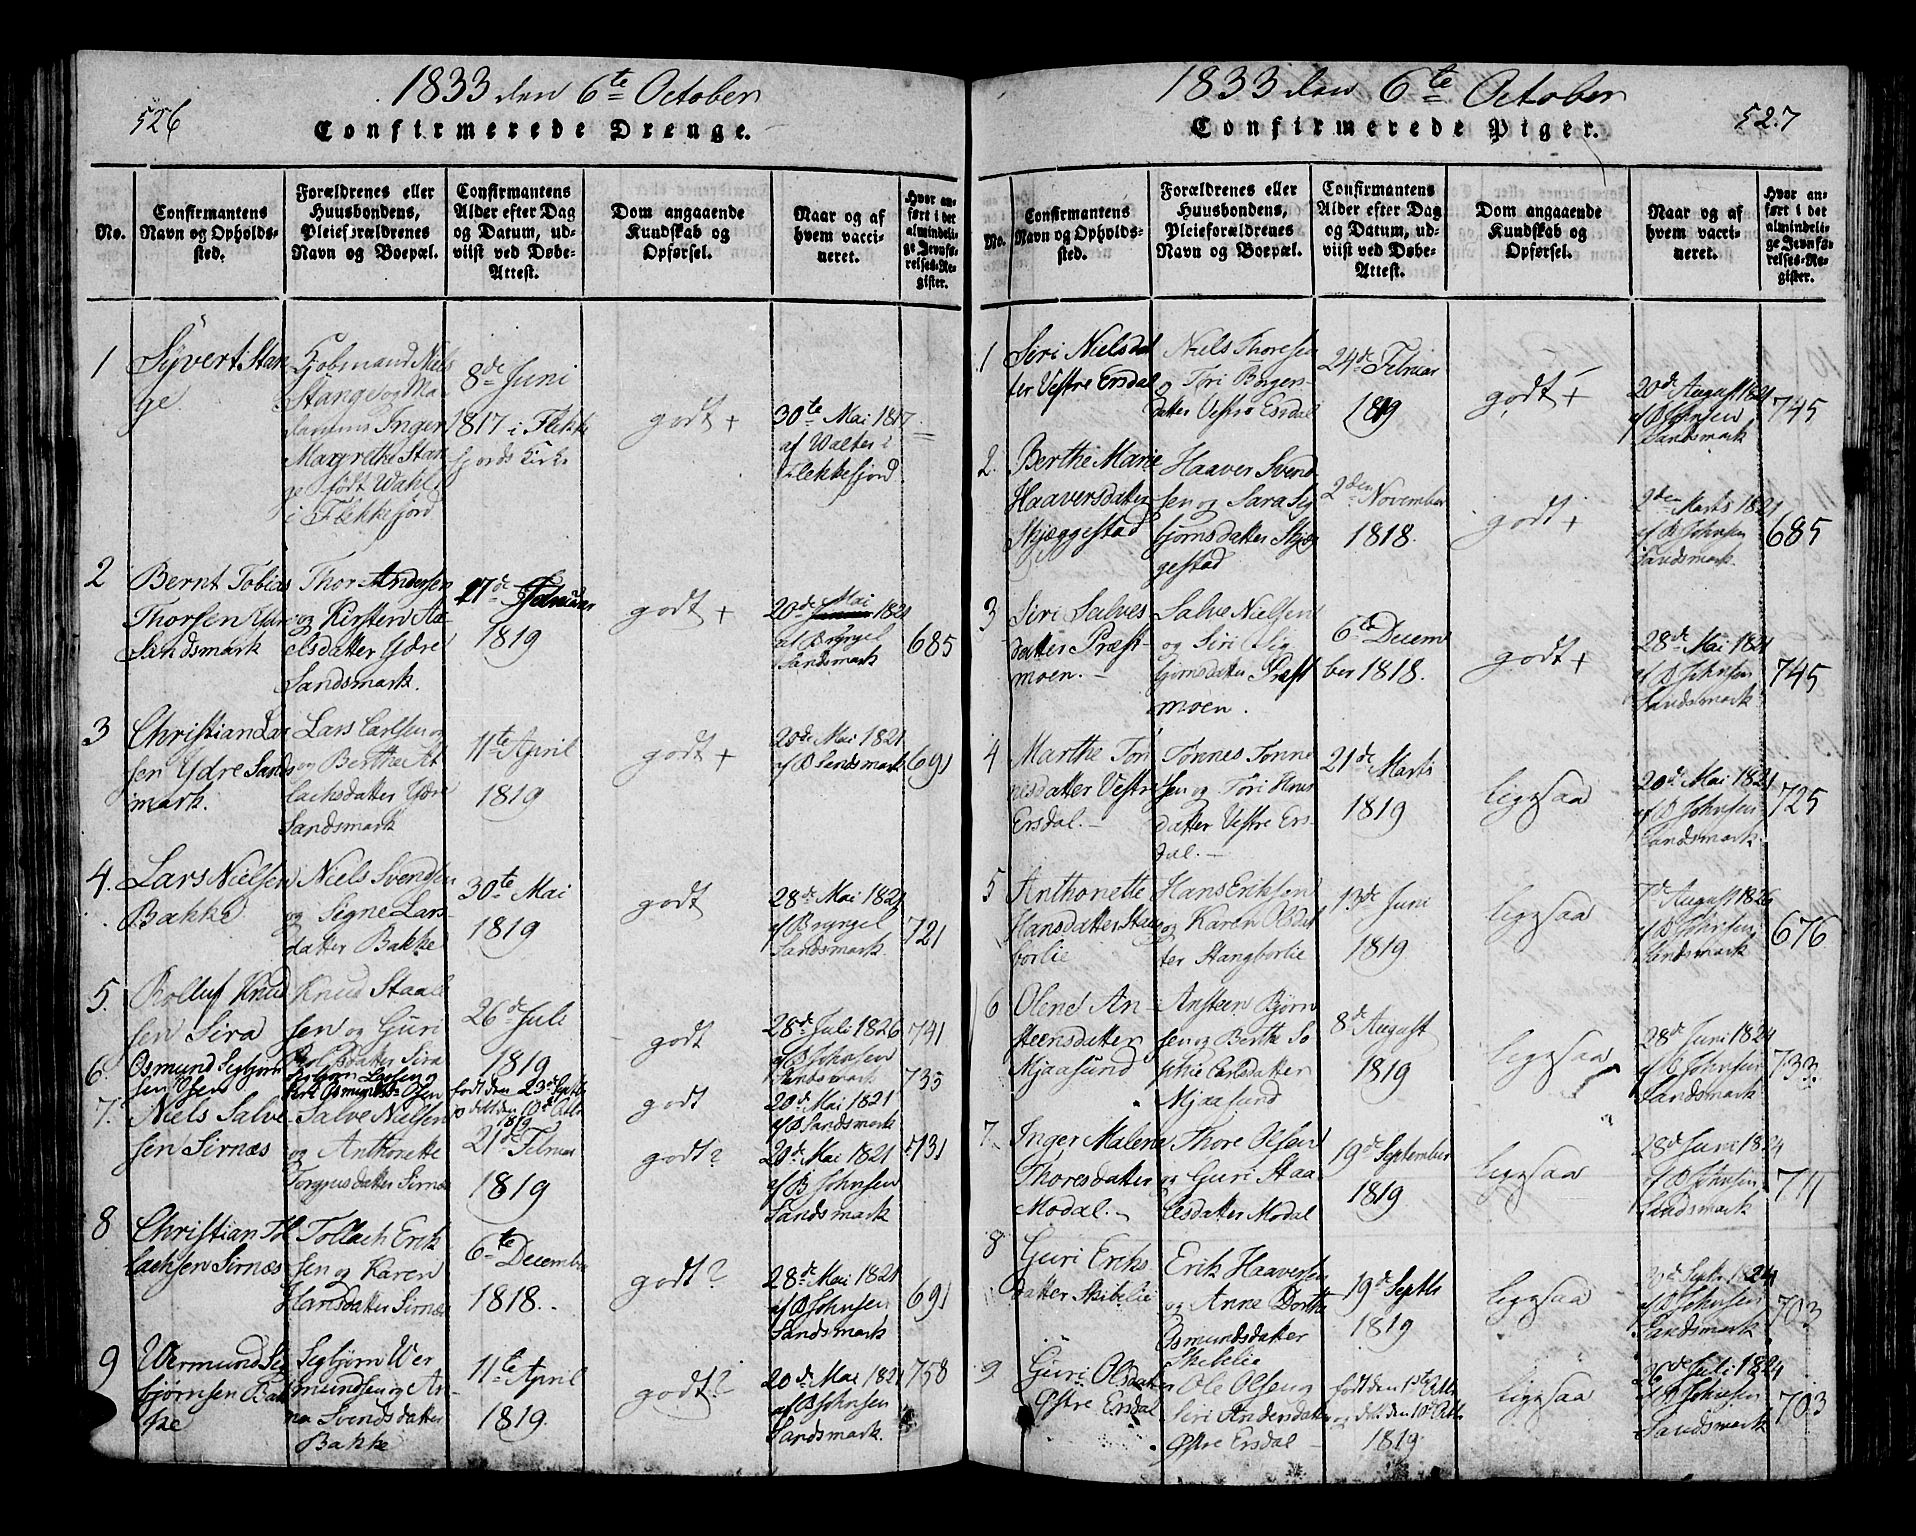 526
1833 den 6te October
Confirmerede Drenge.
No.
Confirmantens
Navn og Opholds-
sted.
Forældrenes eller
Huusbondens,
Pleieforældrenes
Navn og Boepæl.
Confirmantens
Alder efter Dag
og Datum, ud-
viist ved Døbe-
Attest.
Dom angaaende
Kundskab og
Opførsel.
Naar og af
hvem vacci-
neret.
Hvor an-
ført i det
almindeli-
ge Jevnfø-
relses-Re-
gister.
1
Syvert Stan
ge.
Kjøbmand Niels
Stange og Ma
damme Inger
Margrethe Stan
ge født Wahl
i Flekkefjord
8de Juni
1817 i Flekke
fjords Kirke
godt +
30te Mai 1817
af Walter i
Flekkefjord.
2
Bernt Tobias
Thorsen Ydre
Sandsmark
Thor Andersen
og Kirsten Aa-
elsdatter Ydre
Sandsmark.
17de Februar
1819
godt +
20de Mai 1821
af Bryngel
Sandsmark
685
3
Christian Lar
sen Ydre Sands
mark.
Lars Carlsen og
og Berthe At
lachsdatter Ydre
Sandsmark
11te April
1819
godt +
20de Mai 1821
af B Sandsmark
691
4.
Lars Nielsen
Bakke
Niels Svendsen
og Signe Lars-
datter Bakke
30te Mai
1819
godt
28de Mai 1821
af Bryngel
Sandsmark.
721
5.
Rolluf Knud
sen Sira
Knud Staael
sen og Guri
datter Sira
26de Juli
1819
godt
28de Juli 1826
af B Johnsen
Sandsmark
741
6.
Osmund Segbjørn
sen Osen
Segbjørn Larsen og
Osen
født den 23de Septbr
og døbt den 10de Octbr
1819
godt
20de Mai 1821
af B Sandsmark
735
7.
Niels Salve
sen Sirnæs
Salve Nielsen
og Anthonette
Torgersdatter Sirnæs
21de Februar
1819
godt?
20de Mai 1821
af B Johnsen
Sandsmark
731
8
Christian Tol
lachsen Sirnæs
Tollach Erik
sen og Karen
Hansdatter Sirnæs
6te December
1818.
godt?
28de Mai 1821
af B Johnsen
Sandsmark
691
9
Wermund Seg
bjørnsen Bak
ke
Segbjørn Wer
mundsen og An-
na Svendsdatter
Bakke
11te April
1819.
godt?
20de Mai 1821
af B Johnsen
Sandsmark.
758
1833 den 6te October
527
Confirmerede Piger.
No.
Confirmantens
Navn og Opholds-
sted.
Forældrenes eller
Huusbondens,
Pleieforældrenes
Navn og Boepæl.
Confirmantens
Alder efter Dag
og Datum, ud-
viist ved Døbe-
Attest.
Dom angaaende
Kundskab og
Opførsel.
Naar og af
hvem vacci-
neret.
Hvor an-
ført i det
almindeli-
ge Jevnfø-
relses-Re-
gister.
1
Siri Nielsdat
ter Vestre Ersdal
Niels Thoresen
og Tori Borgers-
datter Vestre Ersdal
24de Februar
1819
godt +
20de August 1821
af B Johnsen
Sandsmark
745
2.
Berthe Marie
Haaversdatter
Skjeggestad
Haaver Svend
sen og Sara Sig
bjørnsdatter Skjeg
gestad
2den November
1818.
godt +
2den Marts 1821
af B Johnsen
Sandsmark.
685
3
Siri Salves
datter Præst-
moen.
Salve Nielsen
og Siri Sig
bjørnsdatter Præst
moen.
6te Decem
ber 1818.
godt +
28de Mai 1821
af B Johnsen
Sandsmark
745
4
Marthe Tøn
nesdatter Vestre
Ersdal.
Tønnes Tønne
sen og Tori Hans
datter Vestre Ers-
dal.
21de Marts
1819
ligesaa
20de Mai 1821
af B Johnsen
Sandsmark.
725
5
Anthonette
Hansdatter Stang
borlie
Hans Eriksen
og Karen Olsdat
ter Stangborlie
13de Juni
1819
ligesaa
7de August 1826
af B Johnsen
Sandsmark
676
6
Olene An-
steensdatter
Mjaasund
Ansteen Bjørn
sen og Berthe So
phie Carlsdatter
Mjaasund
8de August
1819
ligesaa
28de Juni 1824
af B Johnsen
Sandsmark
733
7.
Inger Malene
Thoresdatter
Modal.
Thore Olsen
og Guri Staa
elsdatter Modal
19de September
1819
ligesaa
28de Juni 1824
af B Johnsen
Sandsmark
711
8
Guri Eriks
datter Skibelie
Erik Haaversen
og Anne Dorthe
Osmundsdatter
Skibelie
19de Septbr
1819
ligesaa
20de Septr 1824
af B Johnsen
Sandsmark
703
9
Guri Olsdatter
Østre Ersdal
Ole Olsen og
Siri Andersdatter
Østre Ersdal
født den 1ste Octbr
og døbt den 10de Octbr
1819
ligesaa
26de Juli 1824
af B Johnsen
Sandsmark
703